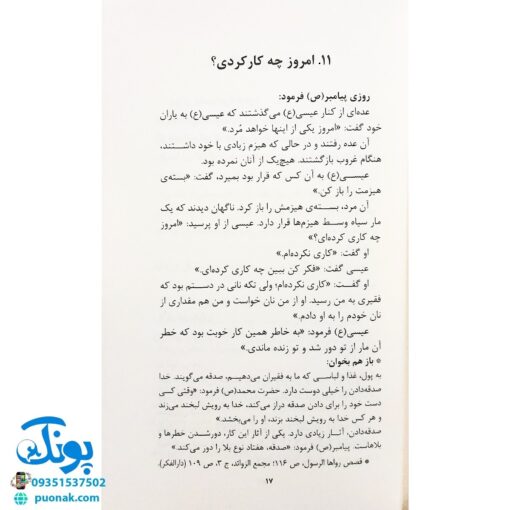 ۱۱. امروز چه کارکردی؟
روزی پیامبر(ص) فرمود:
عده‌ای از کنار عیسی(ع) می‌گذشتند که عیسی(ع) به یاران
خود گفت: «امروز یکی از اینها خواهد مُرد.»
آن عده رفتند و در حالی که هیزم زیادی با خود داشتند،
هنگام غروب بازگشتند. هیچ‌یک از آنان نمرده بود.
عیسی(ع) به آن کس که قرار بود بمیرد، گفت: «بسته‌ی
هیزمت را باز کن.»
آن مرد، بسته‌ی هیزمش را باز کرد. ناگهان دیدند که یک
مار سیاه وسط هیزم‌ها قرار دارد. عیسی از او پرسید: «امروز
چه کاری کرده‌ای؟»
او گفت: «کاری نکرده‌ام.»
عیسی گفت: «فکر کن ببین چه کاری کرده‌ای.»
او گفت: «کاری نکرده‌ام؛ ولی تکه نانی در دستم بود که
فقیری به من رسید. او از من نان خواست و من هم مقداری از
نان خودم را به او دادم.»
عیسی(ع) فرمود: «به خاطر همین کار خوبت بود که خطر
آن مار از تو دور شد و تو زنده ماندی.»
* باز هم بخوان:
به پول، غذا و لباسی که ما به فقیران می‌دهیم، صدقه می‌گویند. خدا
صدقه‌دادن را خیلی دوست دارد. حضرت محمد(ص) فرمود: «وقتی کسی
دست خود را برای دادن صدقه دراز می‌کند، خدا به رویش لبخند می‌زند
و هر کس خدا به رویش لبخند بزند، او را می‌بخشد.»
صدقه‌دادن، آثار زیادی دارد. یکی از آثار این کار، دورشدن خطرها و
بلاهاست. پیامبر(ص) فرمود: «صدقه، هفتاد نوع بلا را دور می‌کند.»
* قصص رواها الرسول، ص ۱۱۶؛ مجمع الزوائد، ج ۳، ص ۱۰۹ (دارالفکر).
۱۷
پونک
09351537502
puonak.com